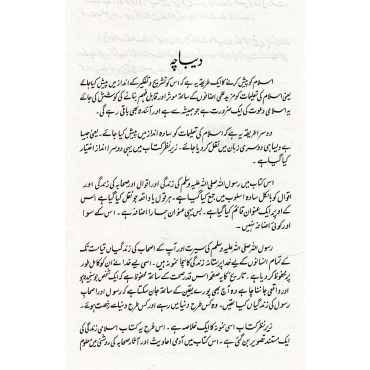 دیباچہ
اسلام کو پیش کرنے کا ایک طریقہ یہ ہے کہ اس کو تشریح و تفکیر کے انداز میں پیش کیا جائے
یعنی اسلام کی تعلیمات کو مزید علمی اضافوں کے ساتھ موثر اور قابل فہم بنانے کی کوشش کی جائے
یہ اسلامی دعوت کی ایک ضرورت ہے جو ہمیشہ سے ہے اور آئندہ بھی باقی رہے گی۔
دوسرا طریقہ یہ ہے کہ اسلام کی تعلیمات کو سادہ انداز میں پیش کیا جائے۔ یعنی جیسا
ہے ویسا ہی دوسری زبان میں نقل کر دیا جائے۔ زیر نظر کتاب میں یہی دوسرا انداز اختیار
کیا گیا ہے۔
اس کتاب میں رسول اللہ صلی اللہ علیہ وسلم کی زندگی اور اقوال اور صحابہ کی زندگی اور
اقوال کو بالکل سادہ اسلوب میں جمع کیا گیا ہے۔ ہر قول یا واقعہ جو نقل کیا گیا ہے اس
کے اوپر ایک عنوان قائم کیا گیا ہے۔ بس یہی عنوان ہمارا اضافہ ہے۔ اس کے سوا
اور کوئی اضافہ نہیں۔
رسول اللہ صلی اللہ علیہ وسلم کی سیرت اور آپ کے اصحاب کی زندگیاں قیامت تک
کے تمام انسانوں کے لیے خدا پرستانہ زندگی کا سچا نمونہ ہیں۔ اسی لیے خدا نے ان کو کامل طور
پر محفوظ کر دیا ہے۔ تاریخ کا یہ صفحہ اس قدر صحت کے ساتھ محفوظ ہے کہ ایک شخص جو سنجیدہ ہو
اور واقعی جاننا چاہے وہ آج بھی پورے یقین کے ساتھ جان سکتا ہے کہ رسول اور اصحاب
رسول کی زندگیاں کیا تھیں۔ وہ کس طرح دنیا میں رہے اور کس طرح دنیا سے رخصت ہوئے۔
زیر نظر کتاب اسی نمونہ کا ایک خلاصہ ہے۔ اس طرح یہ کتاب اسلامی زندگی کی
ایک مستند تصویر بن گئی ہے۔ اس کتاب میں آدمی احادیث اور آثار صحابہ کی روشنی میں معلوم